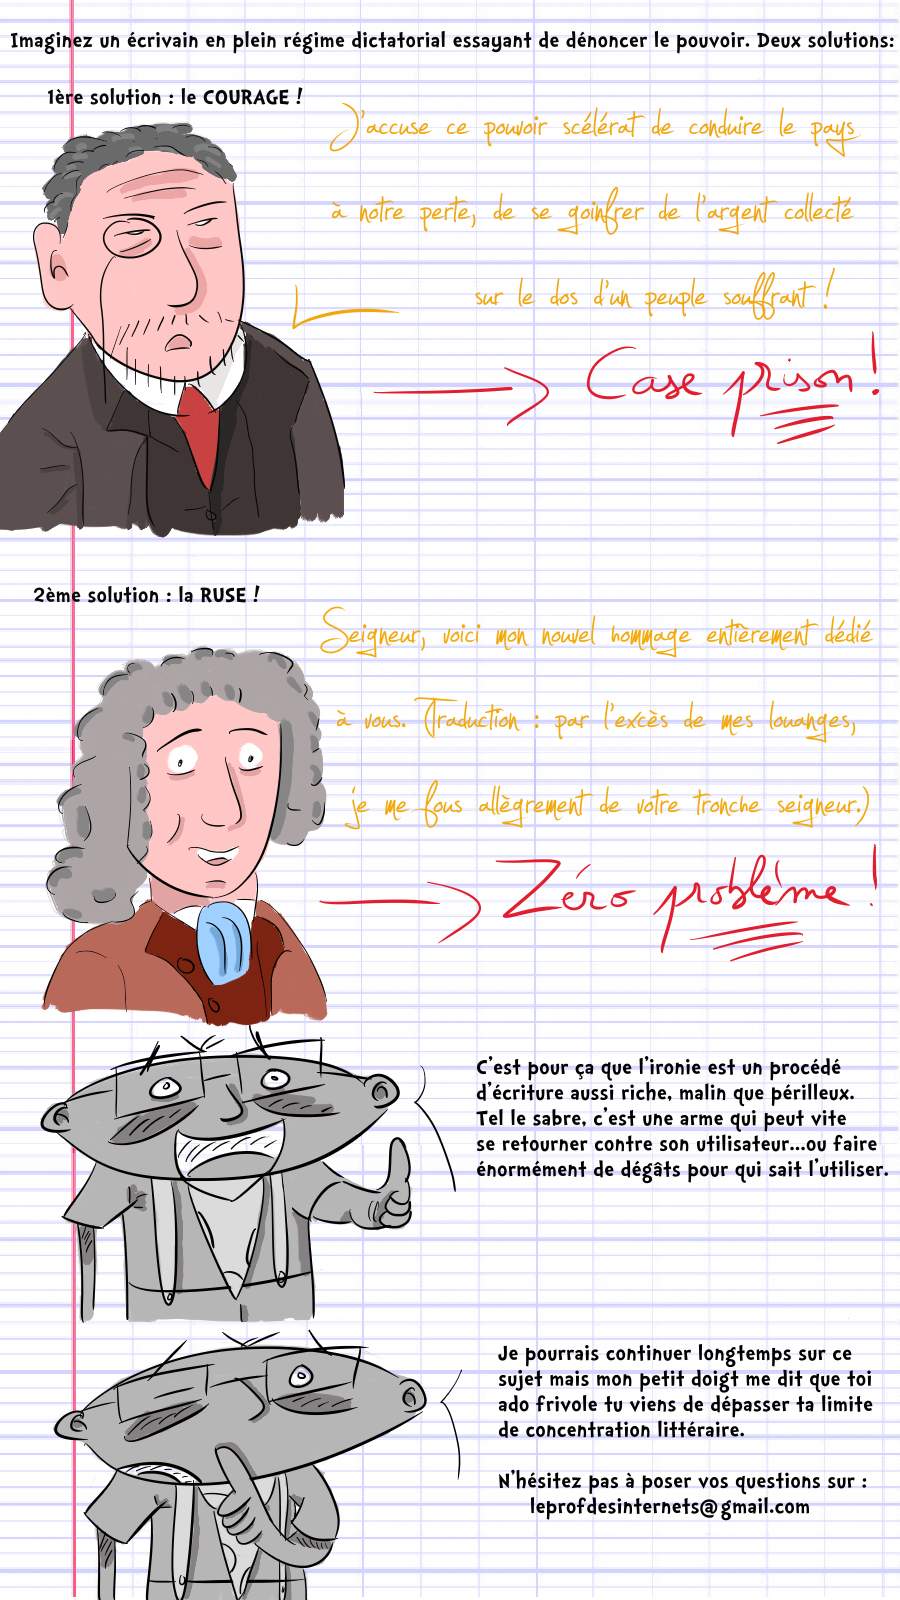 Imaginez un écrivain en plein régime dictatorial essayant de dénoncer le pouvoir. Deux solutions:
1ère solution : le COURAGE !
J'accuse ce pouvoir scélérat de conduire le pays
à notre perte, de se goinfrer de l'argent collecté
sur le dos d'un peuple souffrant !
Case prison !
2ème solution : la RUSE !
Seigneur, voici mon nouvel hommage entièrement dédié
à vous. (Traduction : par l'excès de mes louanges,
je me fous allègrement de votre tronche seigneur.)
Zéro problème !
C'est pour ça que l'ironie est un procédé
d'écriture aussi riche, malin que périlleux.
Tel le sabre, c'est une arme qui peut vite
se retourner contre son utilisateur...ou faire
énormément de dégâts pour qui sait l'utiliser.
Je pourrais continuer longtemps sur ce
sujet mais mon petit doigt me dit que toi
ado frivole tu viens de dépasser ta limite
de concentration littéraire.
N'hésitez pas à poser vos questions sur :
leprofdesinternets@gmail.com